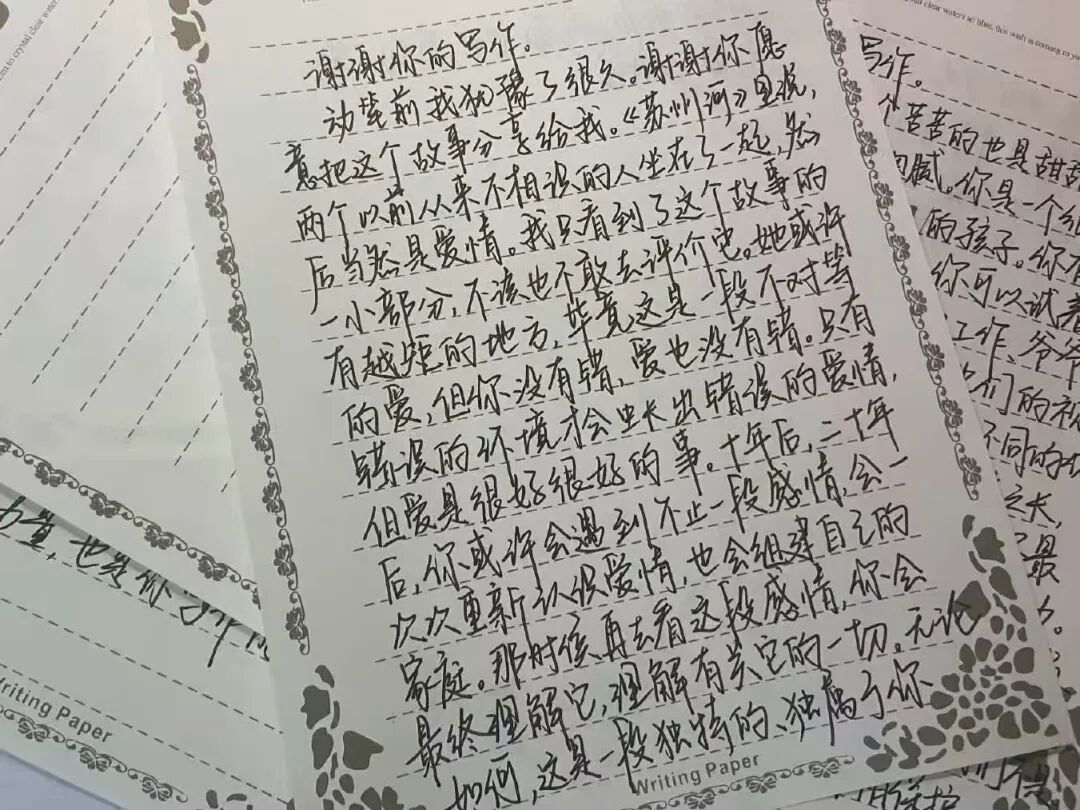 谢谢你的写作。
动笔前我犹豫了很久。谢谢你愿
意把这个故事分享给我。《苏州河》里说,
两个以前从来不相识的人坐在了一起,然
后当然是爱情。我只看到了这个故事的
一小部分,不该也不敢去评价它。她或许
有越矩的地方,毕竟这是一段不对等
的爱,但你没有错,爱也没有错。只有
错误的环境才会生长出错误的爱情,
但爱是很好很好的事。十年后,二十年
后,你或许会遇到不止一段感情,会一
次次重新认识爱情,也会组建自己的
家庭。那时候再去看这段感情,你会
最终理解它,理解有关它的一切。无论
如何,这是一段独特的、独属于你
Writing Paper
写作。
个苦苦的也是甜甜
细腻。你是一个细
的孩子。你
你可以试着
工作、爷爷
们的祝
不同的
之长,
最
力量,也给你
Writing Paper
to crystal clear waters
clear waters so blue, this wish is coming to you